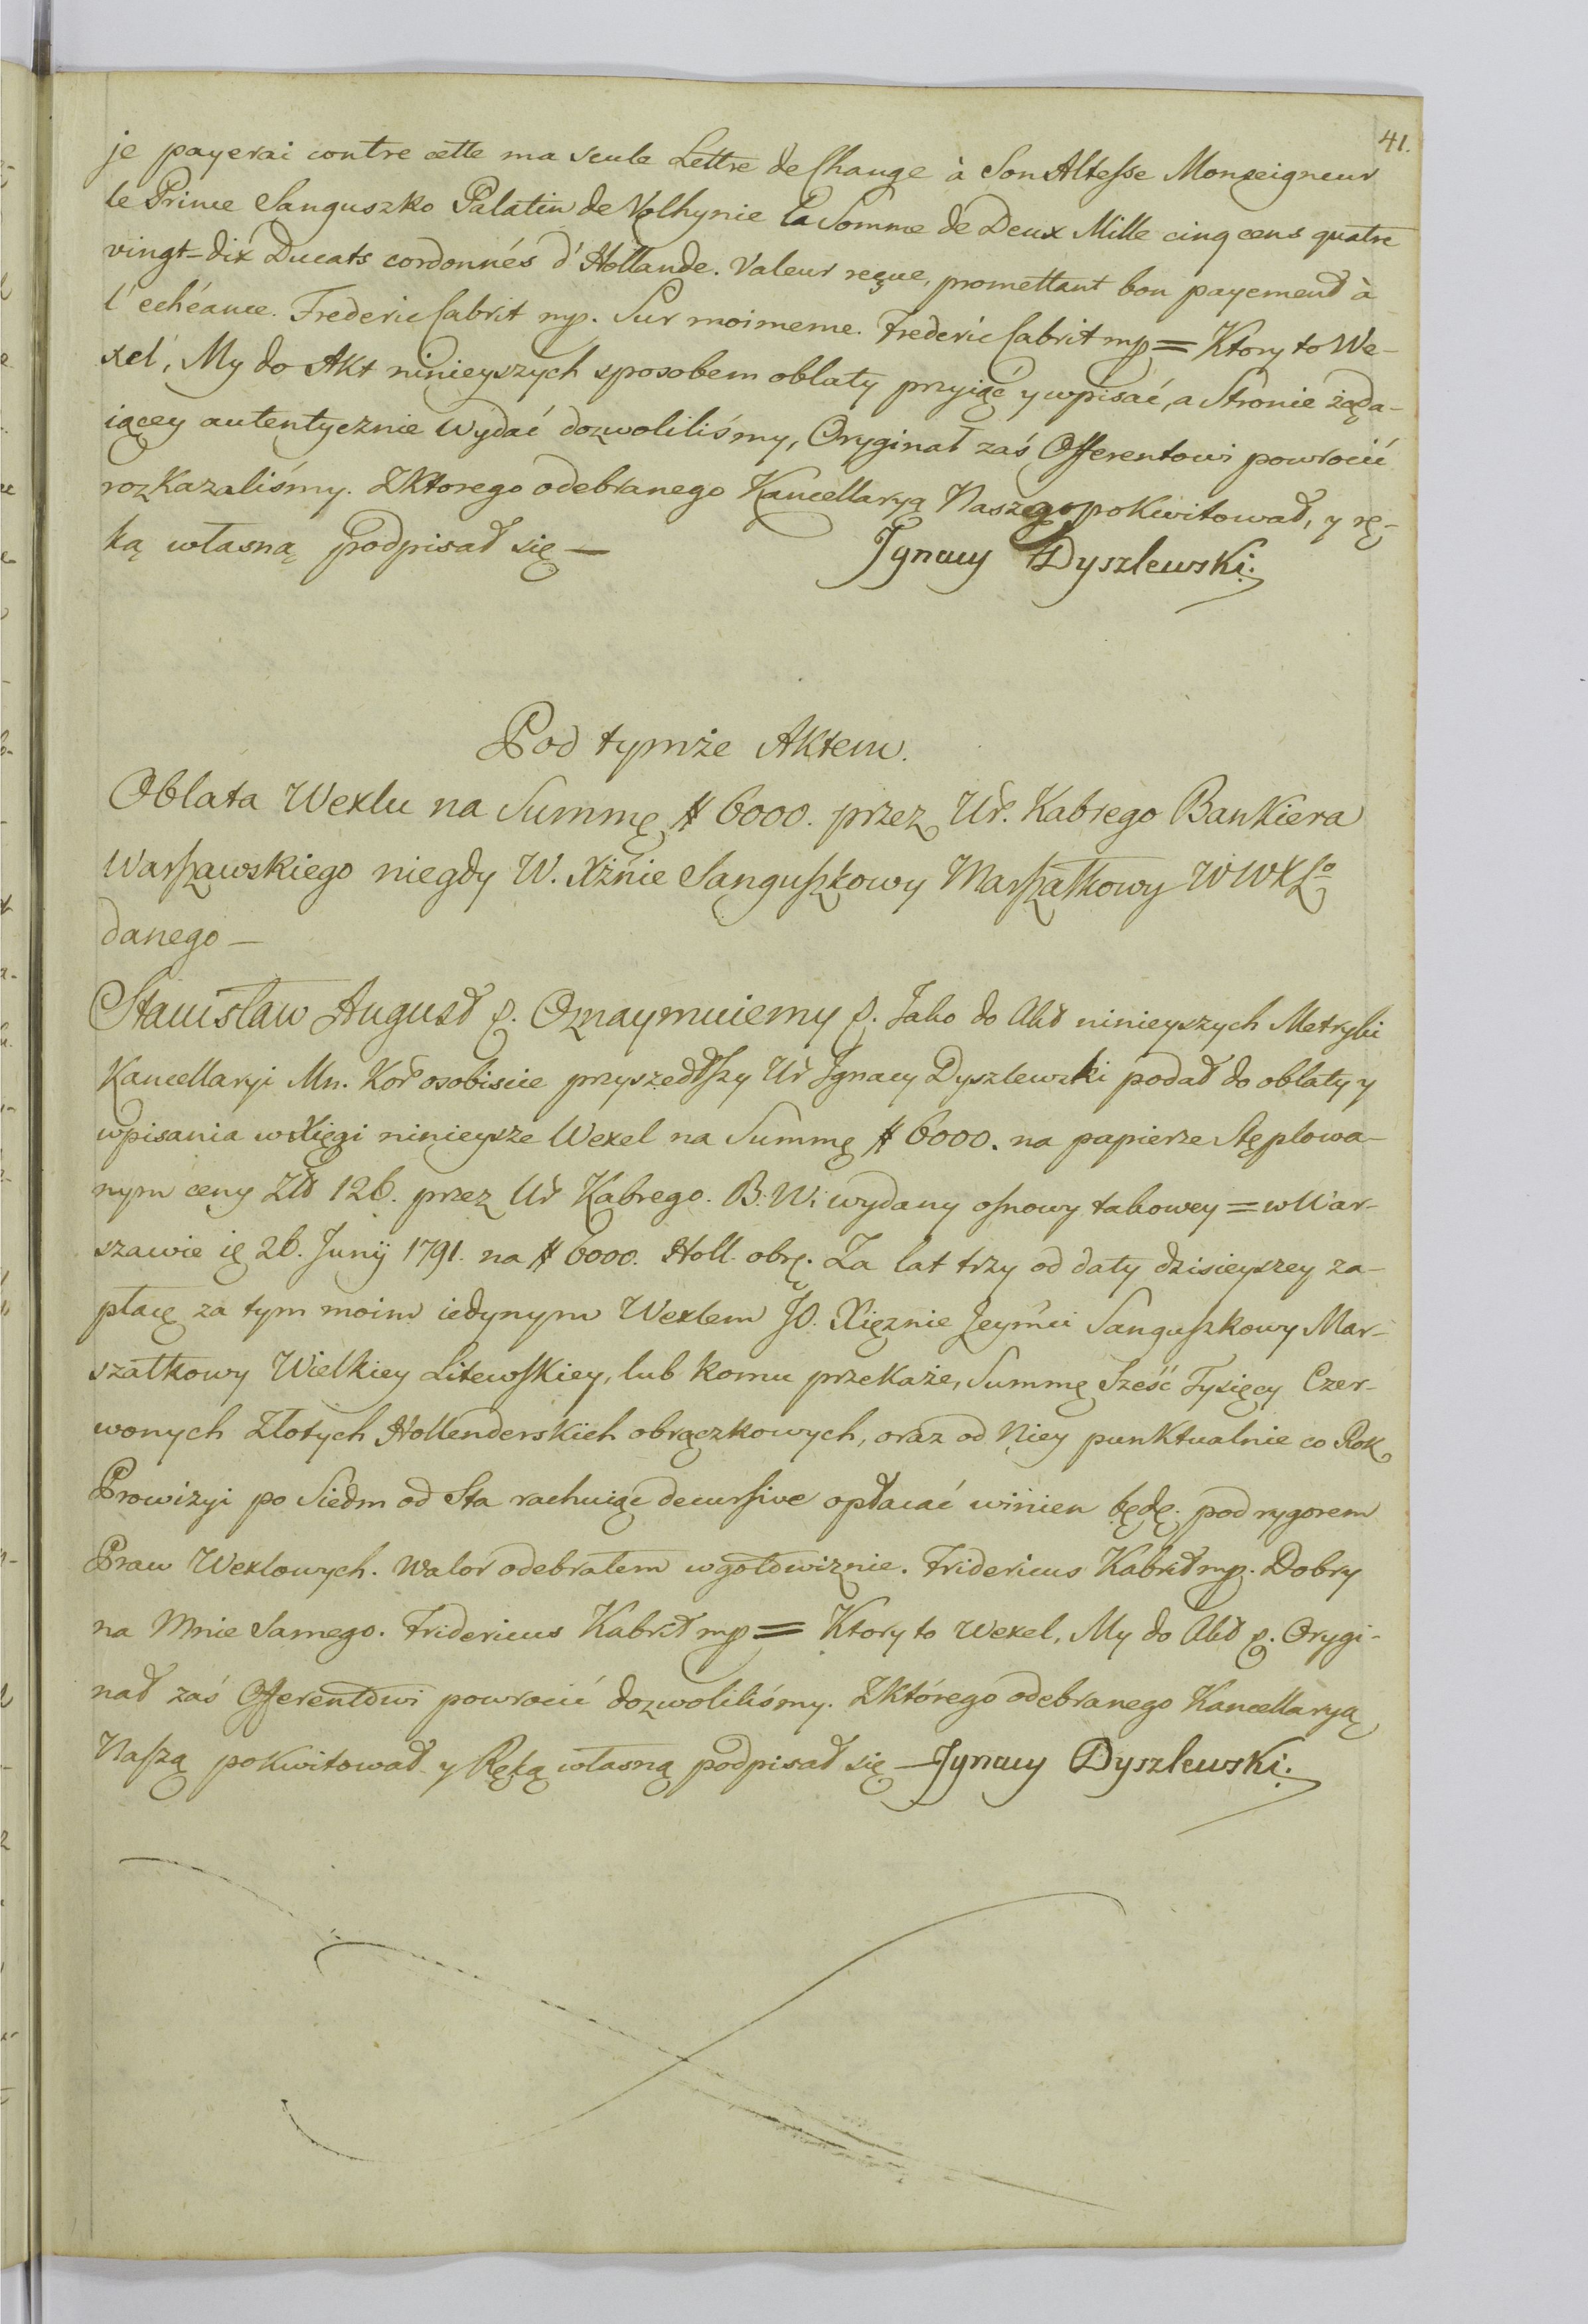 41.
je payerai contre cette ma seule Lettre de Change à Son Altesse Monseigneur
le Prince Sanguszko Palatin de Volhynie la Somme de Deux Mille cinq cens quatre
vingt-dix Ducats cordonnés d'Hollande. Valeur reçue, promettant bon payement à
l'echéance. Frederic Cabrit mp. Sur moimeme. Frederic Cabrit mp = Ktory to We-
xel, My do Akt ninieyszych sposobem oblaty przyiąć y wpisać, a Stronie żąda-
iącey autentycznie wydać dozwoliliśmy, Oryginał zaś Offerentowi powrocić
rozkazaliśmy. Z Ktorego odebranego Kancellaryą Naszą pokwitował, y rę-
ką własną podpisał się —
Ignacy Dyszlewski.
Pod tymże Aktem.
Oblata Wexlu na Summę # 6000. przez Ur. Kabrego Bankiera
Warszawskiego niegdy W. Xżnie Sanguszkowy Marszałkowy W WXLo
danego —
Stanisław August p. Oznaymuiemy p. Jako do Akt ninieyszych Metryki
Kancellaryi Mn. Kor osobiscie przyszedłszy Ur Ignacy Dyszlewski podał do oblaty y
wpisania w Xięgi ninieysze Wexel na Summę # 6000. na papierze Stęplowa-
nym ceny Złt 126. przez Ur Kabrego. B. W. wydany osnowy takowey = w War-
szawie ię 26. Junij 1791. na # 6000. Holl. obrę. Za lat trzy od daty dzisieyszey za-
płacę za tym moim iedynym Wexlem JO. Xięznie Jeymci Sanguszkowy Mar-
szałkowy Wielkiey Litewskiey, lub komu przekaże, Summę Sześć Tysięcy Czer-
wonych Złotych Hollenderskich obrączkowych, oraz od Niey punktualnie co Rok
Prowizyi po Siedm od Sta rachuiąc decursive opłacać winien będę. pod rygorem
Praw Wexlowych. Walor odebrałem w gotowiznie. Fridericus Kabrit mp. Dobry
na Mnie Samego. Fridericus Kabrit mp = Ktory to Wexel, My do Akt p. Orygi-
nał zaś Offerentowi powrocić dozwoliliśmy. Z Którego odebranego Kancellaryą
Naszą pokwitował y Ręką własną podpisał się — Ignacy Dyszlewski.